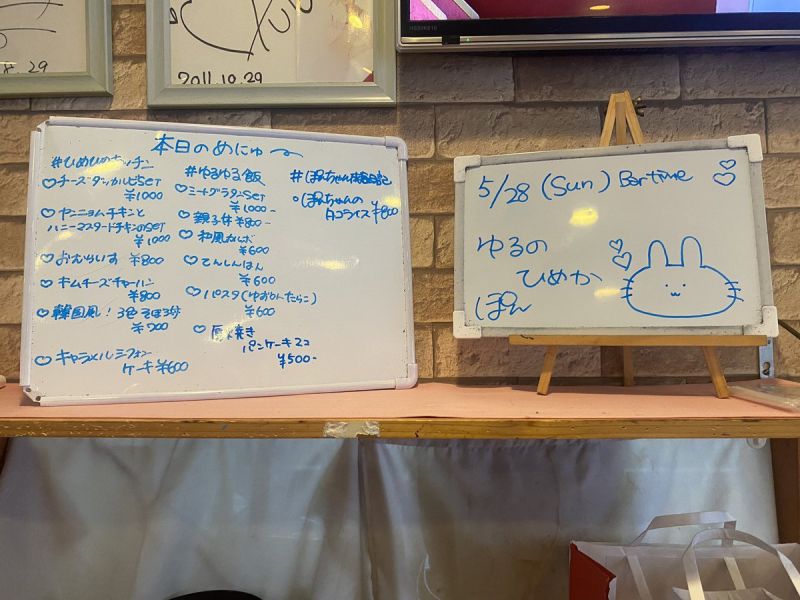 8.29
2011.10.29
本日のめにゅ〜
#ひめひめキッチン
♡チーズダッカルビSET
¥1000
♡ヤンニョムチキンと
ハニーマスタードチキンのSET
¥1000
♡おむらいす ¥800
♡キムチーズチャーハン
¥800
♡韓国風!3色そぼろ丼
¥700
♡キャラメルシフォン
ケーキ ¥600
#ゆるゆる飯
♡ミートグラタンSET
¥1000-
♡親子丼 ¥800-
♡和風カルボ
¥600
♡てんしんはん
¥600
♡パスタ(ゆずめんたらこ)
¥600
♡厚焼き
パンケーキ2コ
¥500-
#ぽんちゃん
・ぽんちゃんの
タコライス ¥800
5/28 (Sun) Bar time ♡
ゆるの
ひめか
ぽん